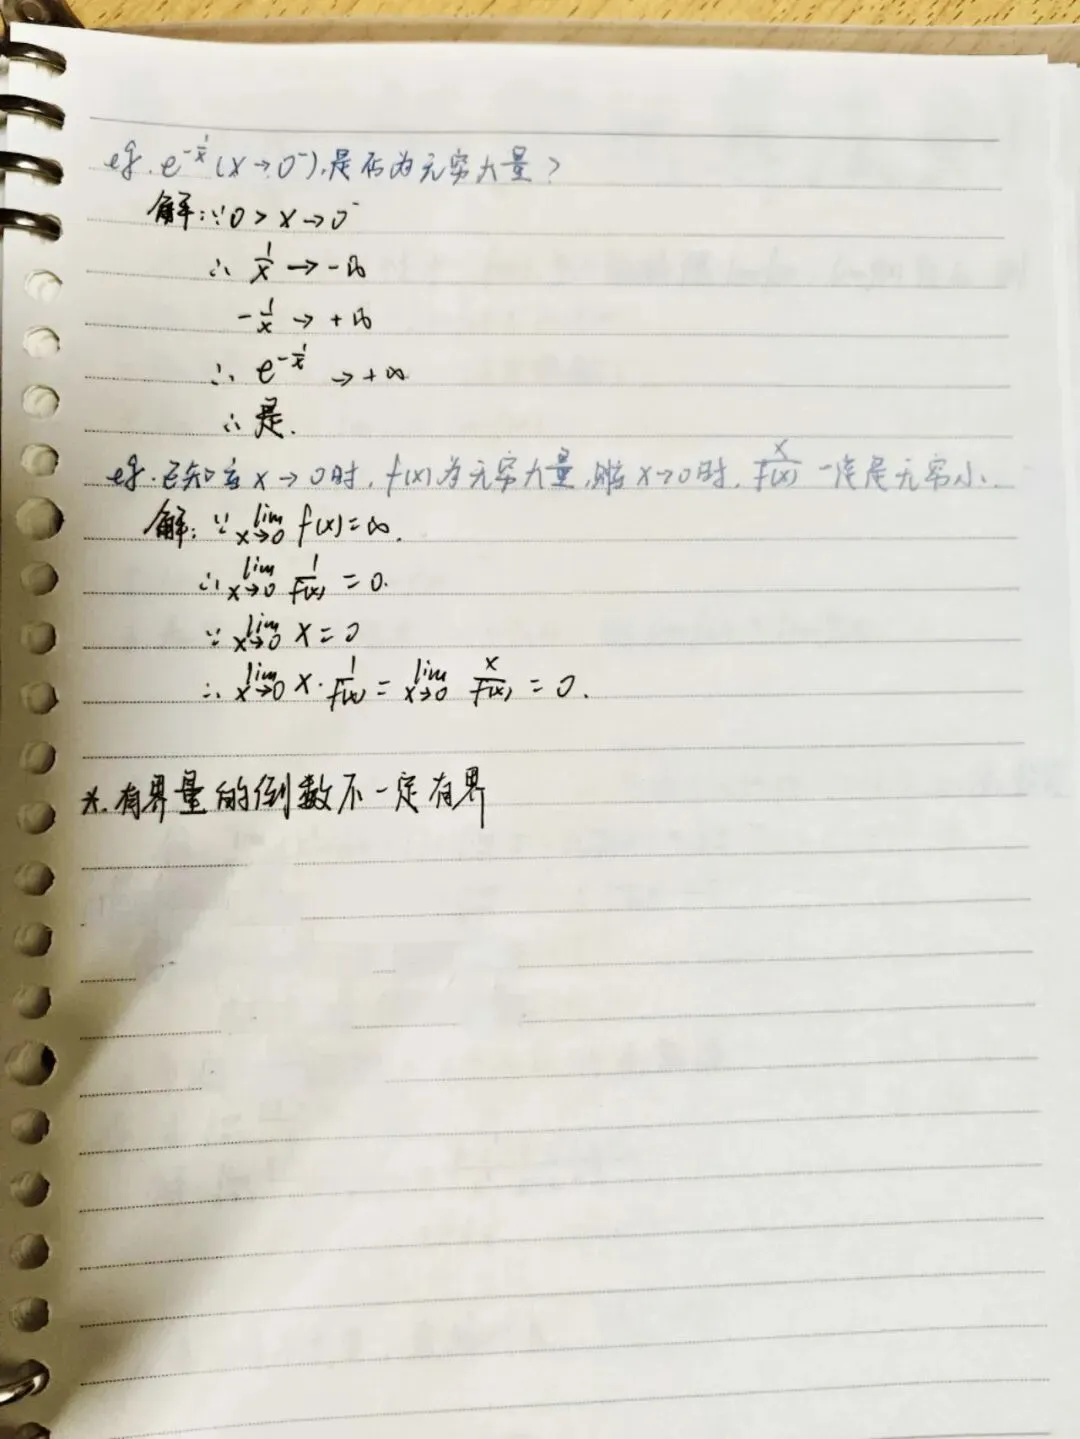 eg. e^{-\frac{1}{x}} (x→0⁻),是否为无穷大量?
解:∵0 > x→0⁻
∴ \frac{1}{x} → -∞
-\frac{1}{x} → +∞
∴ e^{-\frac{1}{x}} → +∞
∴ 是.
eg. 已知当 x→0时, f(x)为无穷大量, 则当 x→0时, \frac{x}{f(x)} 一定是无穷小.
解: ∵ \lim_{x→0} f(x)=∞.
∴ \lim_{x→0} \frac{1}{f(x)} = 0.
∵ \lim_{x→0} x = 0
∴ \lim_{x→0} x·\frac{1}{f(x)} = \lim_{x→0} \frac{x}{f(x)} = 0.
*.有界量的倒数不一定有界